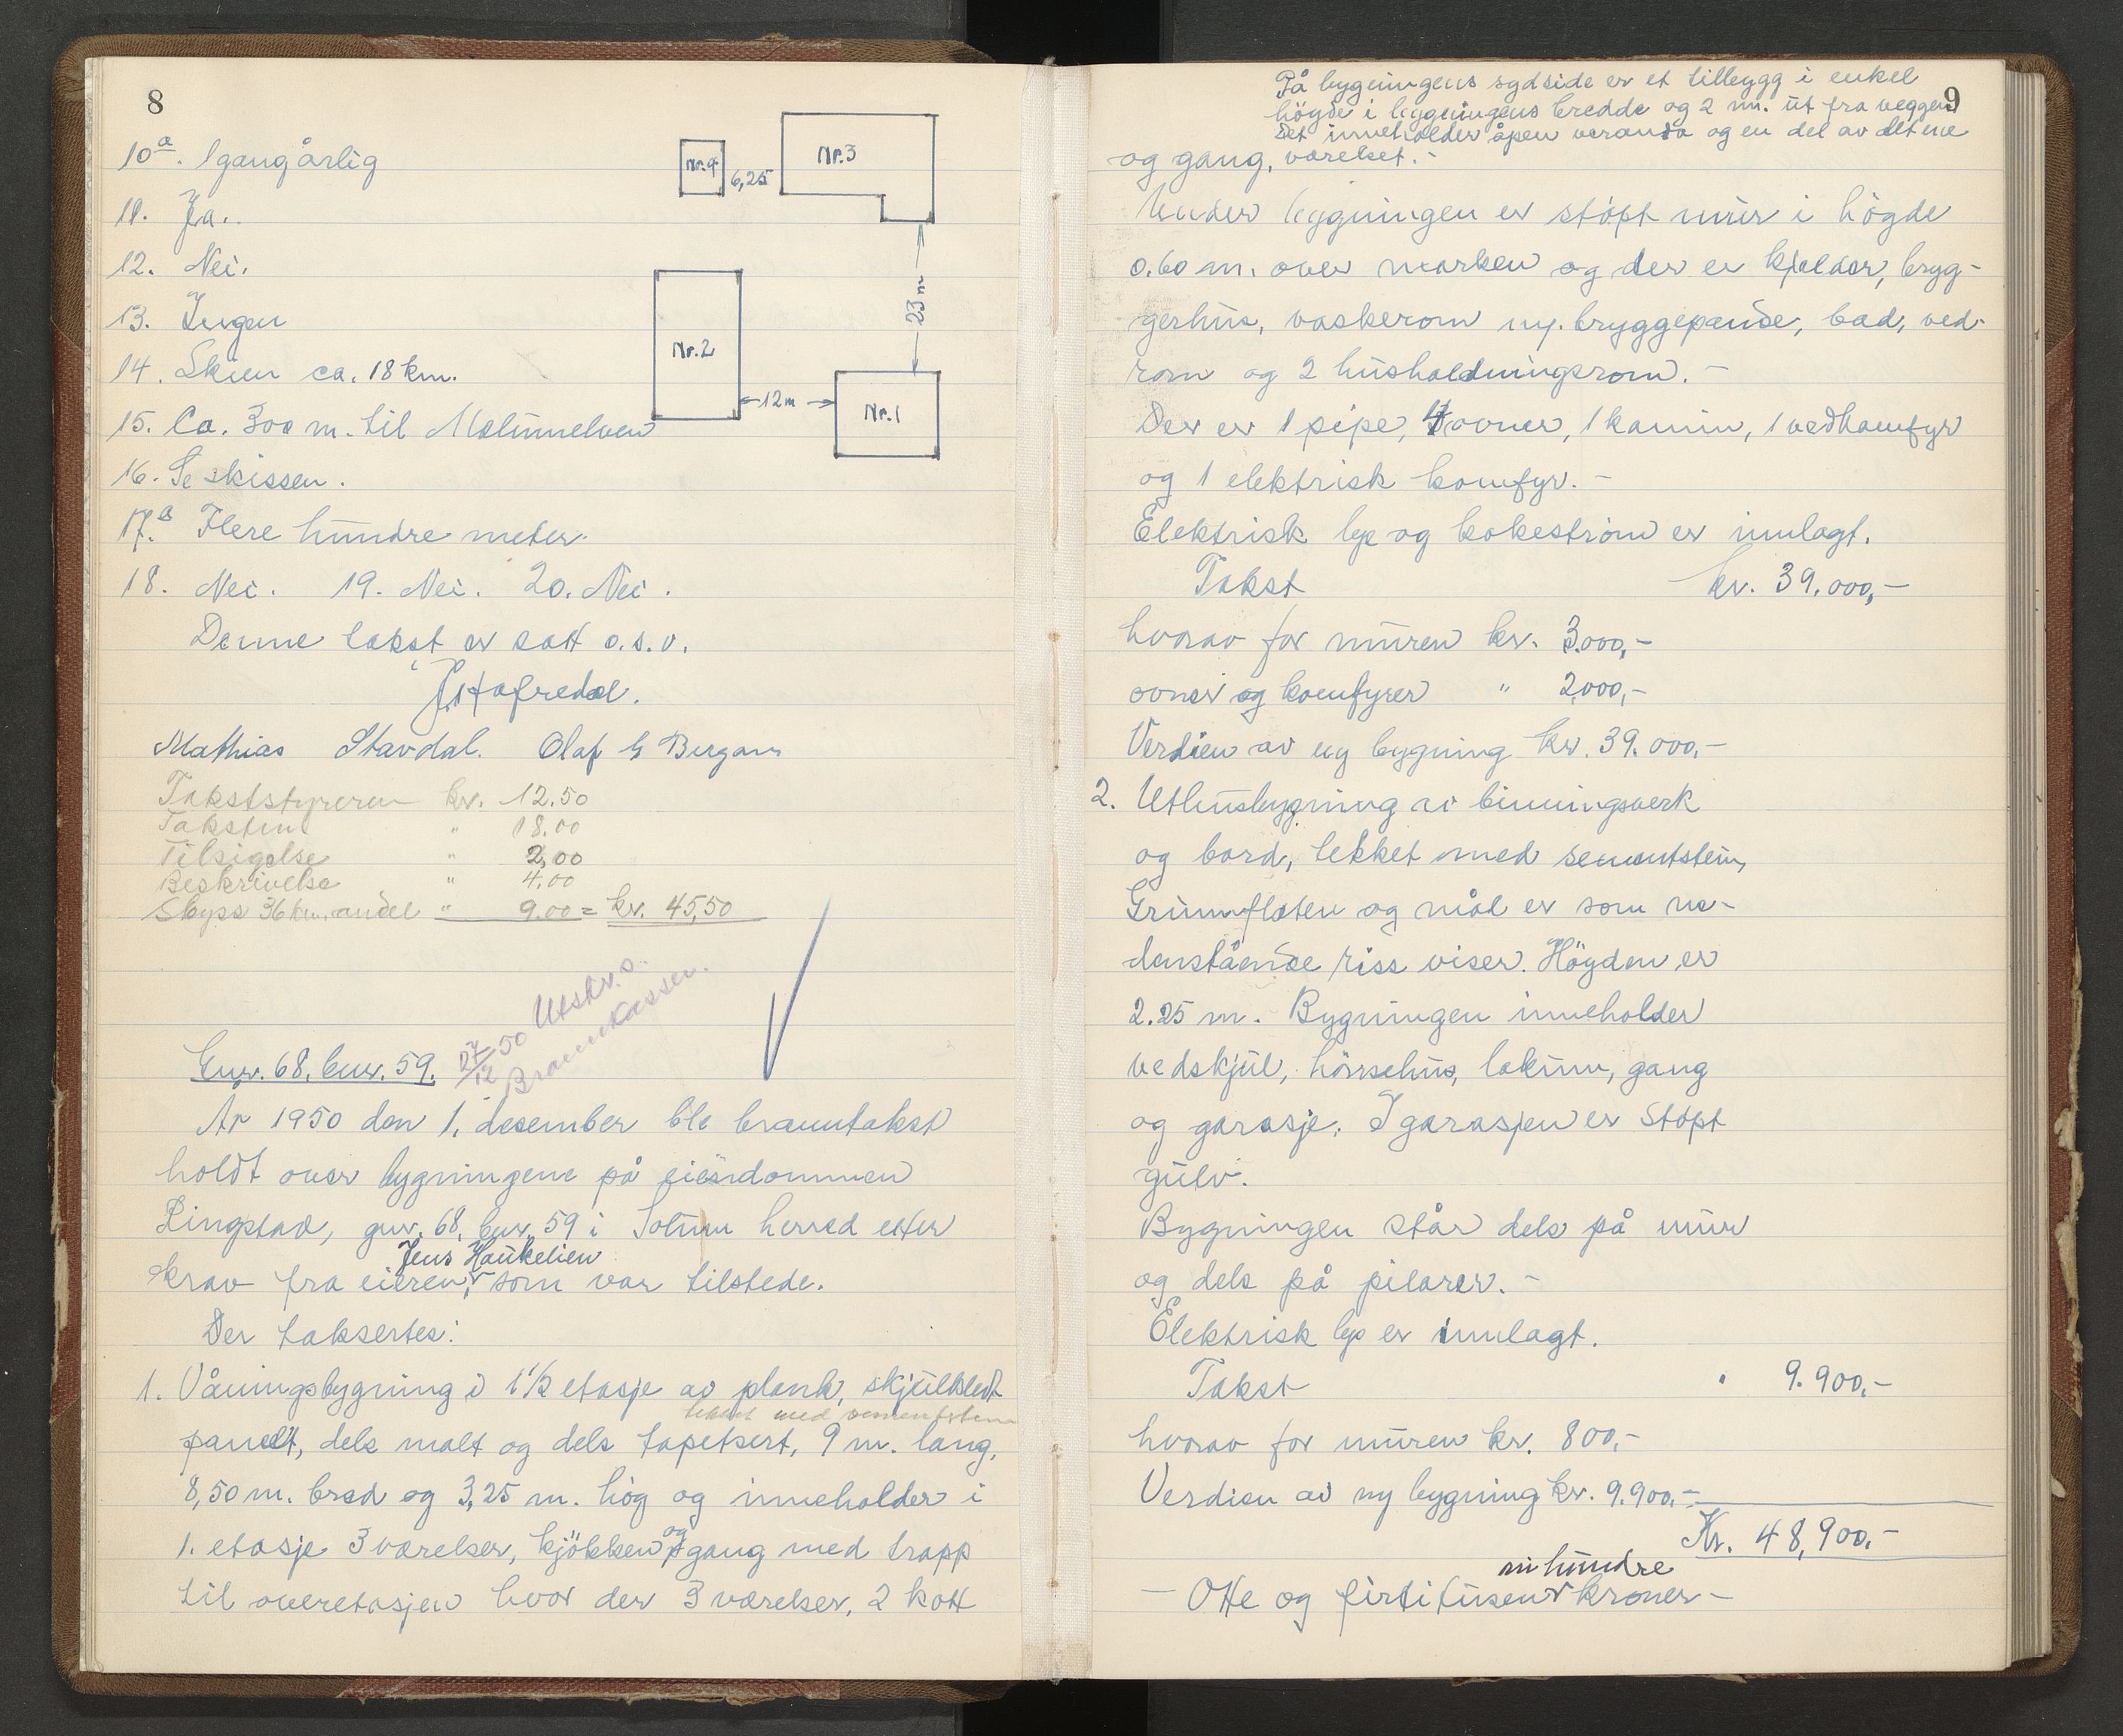 8
10a. 1 gang årlig
11. Ja.
12. Nei.
13. Ingen
14. Skien ca. 18 km.
15. Ca. 300 m. til
16. Se skissen.
17.a Flere hundre meter.
18. Nei. 19. Nei. 20. Nei.
Nr.4
6,25
Nr.3
23 m
Nr.2
12 m
Nr.1
Denne takst er satt o.s.v.
Mathias Stavdal. Olaf G Bergan
Takststyreren kr. 12.50
Takstm. " 18.00
Tilsigelse " 2,00
Beskrivelse " 4.00
Skyss 36 km, andel " 9.00 = kr. 45,50
27/12 50 Utskr. o.
Brannkassen.
Gnr. 68, bnr. 59.
År 1950 den 1. desember ble branntakst
holdt over bygningene på eiendommen
Ringstad, gnr. 68, bnr. 59 i Solum herred etter
Jens Haukelien
krav fra eieren, som var tilstede.
Der taksertes:
1. Våningsbygning i 1 1/2 etasje av plank, skjulkledt
tekket med sementsten
panelt, dels malt og dels tapetsert, 9 m. lang,
8,50 m. bred og 3,25 m. høg og inneholder i
1. etasje 3 værelser, kjökken og gang med trapp
til overetasjen hvor der 3 værelser, 2 kott
9
På bygningens sydside er et tilbygg i enkel
högde i bygningens bredde og 2 m. ut fra veggen
Det inneholder åpen veranda og en del av det ene
og gang, værelset.-
Under bygningen er støpt mur i högde
0.60 m. over marken og der er kjelder, bryg-
gerhus, vaskerom m/. bryggepanne, bad, ved-
rom og 2 husholdningsrom.-
Der er 1 pipe, 4 ovner, 1 kamin, 1 vedkomfyr
og 1 elektrisk komfyr.-
Elektrisk lys og kokestrøm er innlagt.
Takst kr. 39.000,-
hvorav for muren kr. 3.000,-
ovner og komfyrer " 2.000,-
Verdien av ny bygning kr. 39.000.-
2. Uthusbygning av binningsverk
og bord, tekket med sementstein,
Grunnflaten og mål er som ne-
denstående riss viser. Högden er
2.25 m. Bygningen inneholder
vedskjul, hönsehus, lokum, gang
og garasje. I garasjen er støpt
gulv.
Bygningen står dels på mur
og dels på pilarer.-
Elektrisk lys er innlagt.
Takst " 9.900.-
hvorav for muren kr. 800,-
Verdien av ny bygning kr. 9.900.-
Kr. 48,900.-
ni hundre
- Otte og firti tusen kroner -